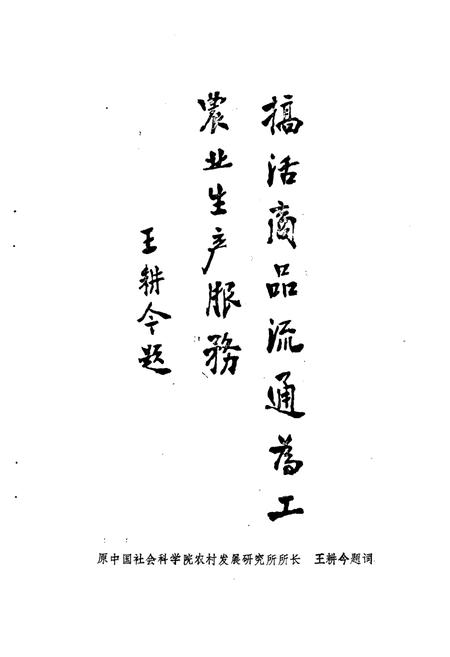 搞活商品流通為工
農业生产服務
王耕今题
原中国社会科学院农村发展研究所所长 王耕今题词